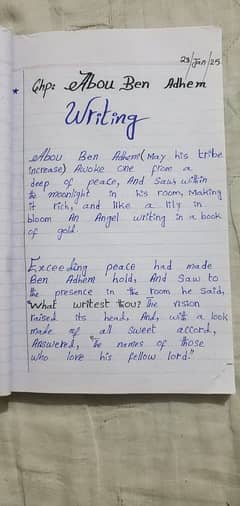 23/Jan/25
Chp: Abou Ben Adhem
Writing
Abou Ben Adhem (May his tribe
increase) Awoke one from a
deep of peace, And Saw within
the moonlight in his room, Making
it rich, and like a lily in
bloom An Angel writing in a book
of gold.
Exceeding peace had made
Ben Adhem hold, And Saw to
the presence in the room he Said,
"What writest thou? The vision
raised its head, And, with a look
made of all sweet accord,
Answered, "The names of those
who love his fellow lord."